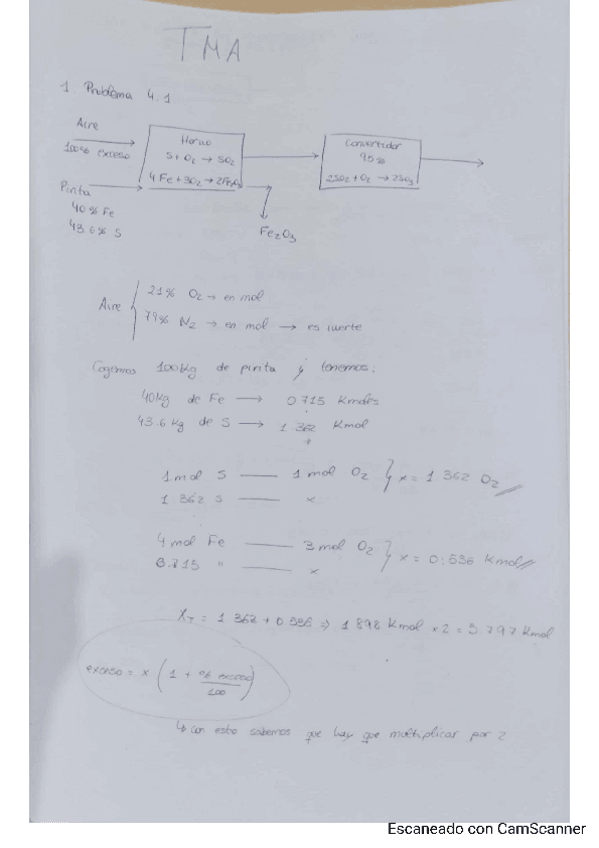 TMA
1 Problema 4.1
Aire
100% exceso
Pirita
40% Fe
43.6% S
Horno
S + O2 → SO2
4 Fe + 3O2 → 2Fe2O3
Fe2O3
Convertidor
95%
2SO2 + O2 → 2SO3
Aire
21% O2 → en mol
79% N2 → en mol → es inerte
Cogemos 100kg de pirita y tenemos:
40kg de Fe → 0.715 Kmoles
43.6 kg de S → 1.362 Kmol
1 mol S — 1 mol O2 } x = 1.362 O2
1.362 S — x
4 mol Fe — 3 mol O2 } x = 0.536 Kmol
0.715 " — x
XT = 1.362 + 0.536 ⇒ 1.898 Kmol × 2 = 3.797 Kmol
exceso = x (1 + % exceso / 100)
↳ con esto sabemos que hay que multiplicar por 2
Escaneado con CamScanner